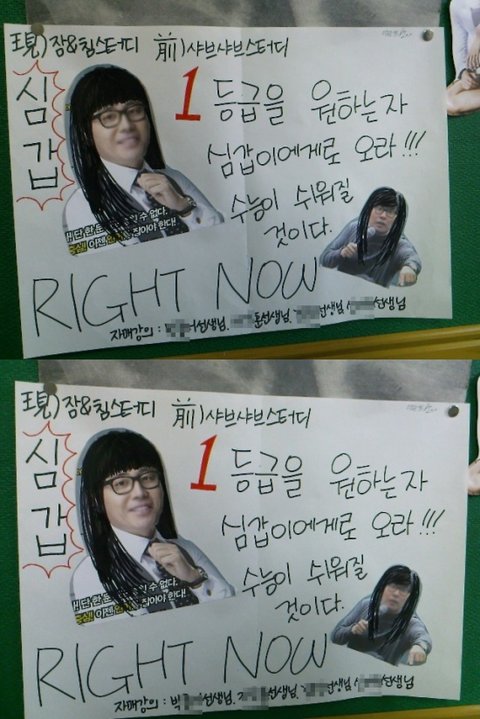 現)잠&힘스터디 前)샤브샤브스터디
심갑
1등급을 원하는자
심갑이에게로 오라!!!
수능이 쉬워질
것이다.
단 한 수 없다.
이젠 잡아야 한다!
RIGHT NOW
자매강의 : 선생님, 훈선생님, 선생님 선생님
現)잠&힘스터디 前)샤브샤브스터디
심갑
1등급을 원하는자
심갑이에게로 오라!!!
수능이 쉬워질
것이다.
단 한 수 없다.
이젠 잡아야 한다!
RIGHT NOW
자매강의 : 박 선생님, 선생님, 선생님 선생님